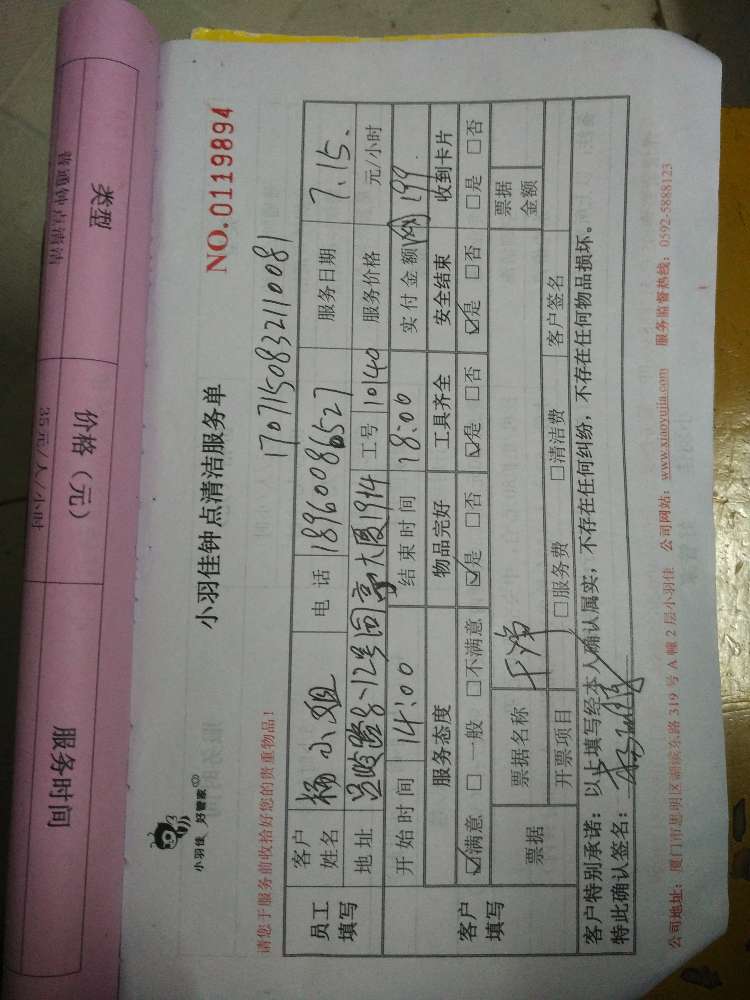 类型 价格（元） 服务时间
普通钟点清洁 35元/人/小时
小羽佳 好管家
小羽佳钟点清洁服务单
NO.0119894
请您于服务前收拾好您的贵重物品！
170715083211 0081
员工填写
客户姓名 杨小姐 电话 18960086527 服务日期 7.15.
地址 号 大厦1914 工号 10140 服务价格 元/小时
开始时间 14:00 结束时间 18:00 实付金额 199
客户填写
服务态度 物品完好 工具齐全 安全结束 收到卡片
☑满意 □一般 □不满意 ☑是 □否 ☑是 □否 ☑是 □否 □是 □否
票据 票据名称 干净 票据金额
开票项目 □服务费 □清洁费 客户签名
客户特别承诺：以上填写经本人确认属实，不存在任何纠纷，不存在任何物品损坏。
特此确认签名：
公司地址：厦门市思明区湖滨东路319号A幢2层小羽佳 公司网站：www.xiaoyujia.com 服务监督热线：0592-5888123